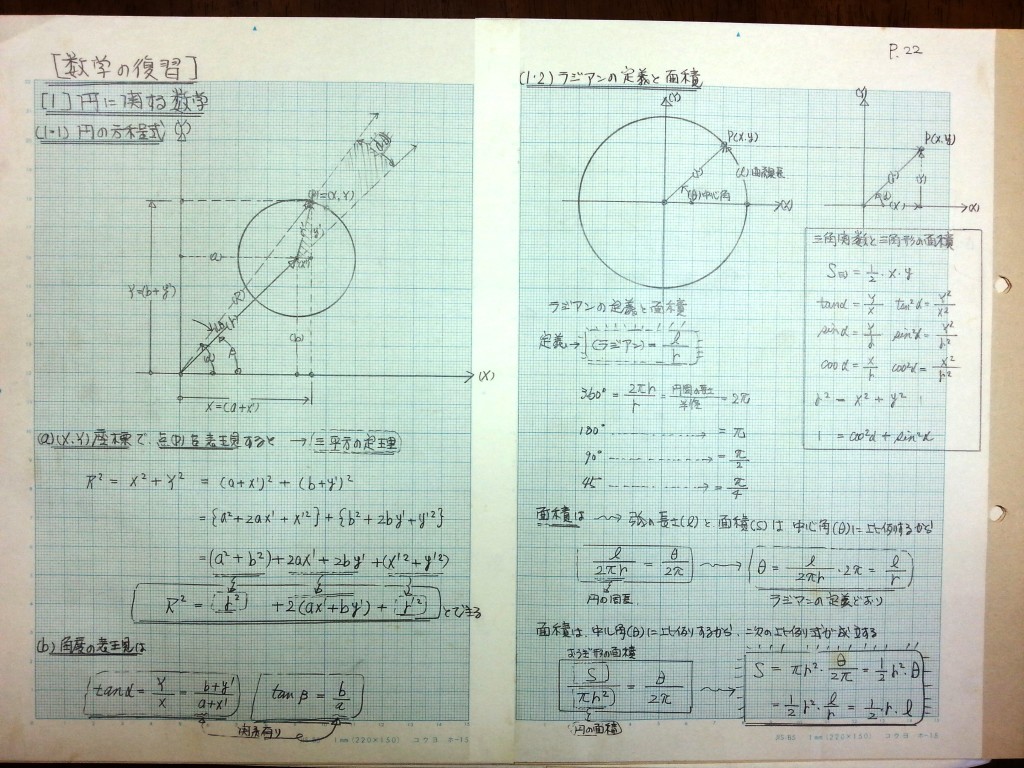 [数学の復習]
[1] 円に関する数学
(1・1) 円の方程式
(Y)
P=(X,Y)
(a)
(x')
(y')
Y=(b+y')
(R)
(b)
β
(X)
X=(a+x')
(a) (X,Y)座標で、点(P)を表現すると → 三平方の定理
R² = X² + Y² = (a+x')² + (b+y')²
= {a²+2ax'+x'²} + {b²+2by'+y'²}
= (a²+b²)+2ax'+2by'+(x'²+y'²)
R² = r² +2(ax'+by') + r'² とできる
(b) 角度の表現は
tanα = Y/X = b+y'/a+x'
tanβ = b/a
関係有り
1mm(220×150) コクヨ ホ-15
P.22
(1・2) ラジアンの定義と面積
(Y)
P(x,y)
(r)
(l)
(θ)中心角
(X)
(Y)
P(x,y)
(r)
(y)
α
(x)
(X)
三角関数と三角形の面積
= 1/2・x・y
tanα = y/x tan²α = y²/x²
sinα = y/r sin²α = y²/r²
cosα = x/r cos²α = x²/r²
r² = x² + y²
1 = cos²α + sin²α
ラジアンの定義と面積
定義→ (ラジアン) = l/r
360° = 2πr/r = 円周の長さ/半径 = 2π
180° → = π
90° → = π/2
45° → = π/4
面積は 〜→ 弧の長さ(l)と面積(S)は中心角(θ)に比例するから
l/2πr = θ/2π 〜→ θ = l/2πr・2π = l/r
円の周長 ラジアンの定義どおり
面積は、中心角(θ)に比例するから、二次の比例式が成立する
おうぎ形の面積
S/(πr²) = θ/2π 〜→ S = πr²・θ/2π = 1/2 r²・θ
= 1/2 r²・l/r = 1/2・r・l
円の面積
1mm(220×150) コクヨ ホ-15